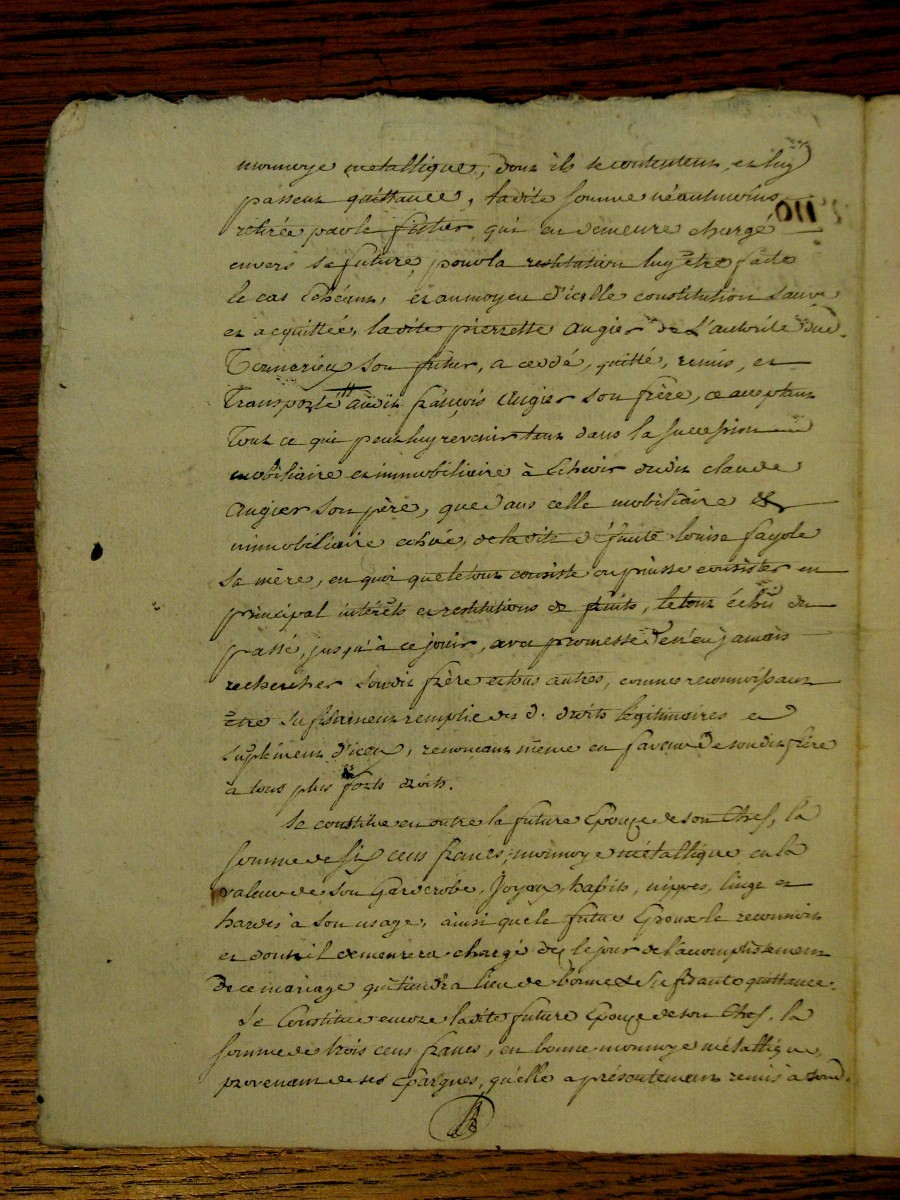 monnoye metallique, dont ils se contentent, et luy
passent quittance, ladite somme néantmoins
110
retirée par le futur qui en demeure chargé
envers sa future, pour la restitution luy être faite
le cas échéant, et au moyen d'icelle constitution sauve
et acquittée, ladite pierrette augier de L'autorité dud.
son futur, a cédé, quitté, remis, et
Transporté audit françois Augier son frère, ce acceptant
Tout ce qui peut luy revenir tant dans la succession
mobiliaire et immobiliaire à Echoir dudit claude
Augier son père, que dans celle mobiliaire et
immobiliaire echüe, de ladite défunte louise fayole
sa mère, en quoi que le tout consiste ou puisse consister en
principal intérêts et restitutions de fruits, le tout échu du
passé, jusqu'à ce jour, avec promesse de n'en jamais
rechercher sondit frère et tous autres, comme reconnoissant
être sufisament remplie des d. droits légitimaires et
suplément d'iceux, renonçant même en faveur de sondit frère
à tous plus forts droits.
Se constitue en outre la future Epouse de son Chef, la
somme de six cens francs, monnoye métallique en la
valeur de son Garderobe, Joyaux, habits, nippes, linge et
hardes à son usage, ainsi que le futur Epoux le reconnoit
et dont il demeurera chargé dès le jour de l'acomplissement
de ce mariage qui tiendra lieu de bonne et sufisante quittance.
Se Constitue encore ladite future Epouse de son Chef, la
somme de trois cens francs, en bonne monnoye métallique,
provenant de ses Epargnes, qu'elle a présentement remis à sond.